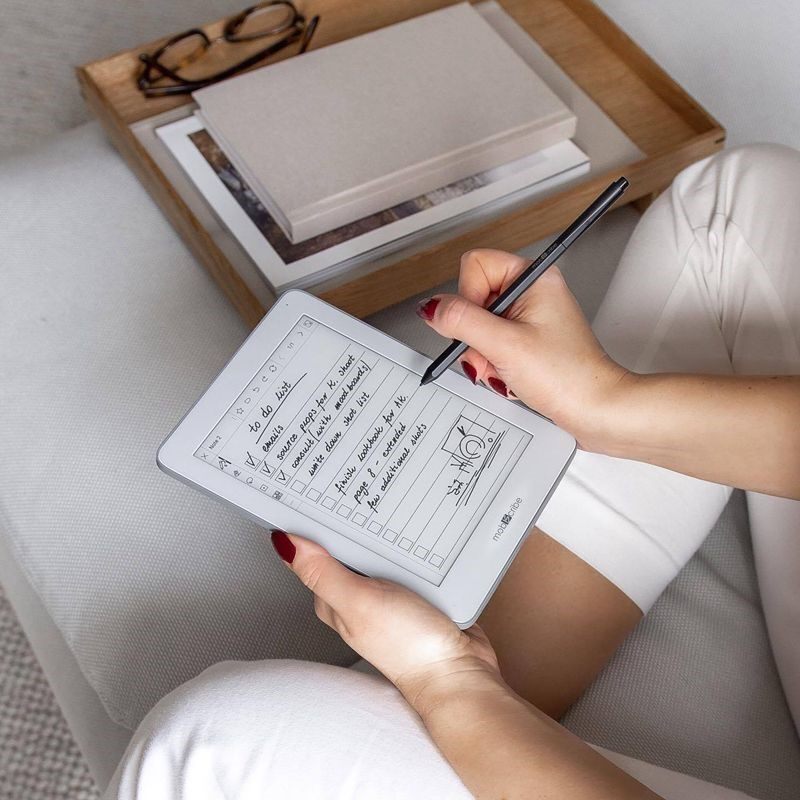 Note 2
to do list
emails
source props for K. shoot
consult (with moodboards)
write down shot list
finish lookbook for AK.
page 8 - extended
few additional shots
mobiscribe